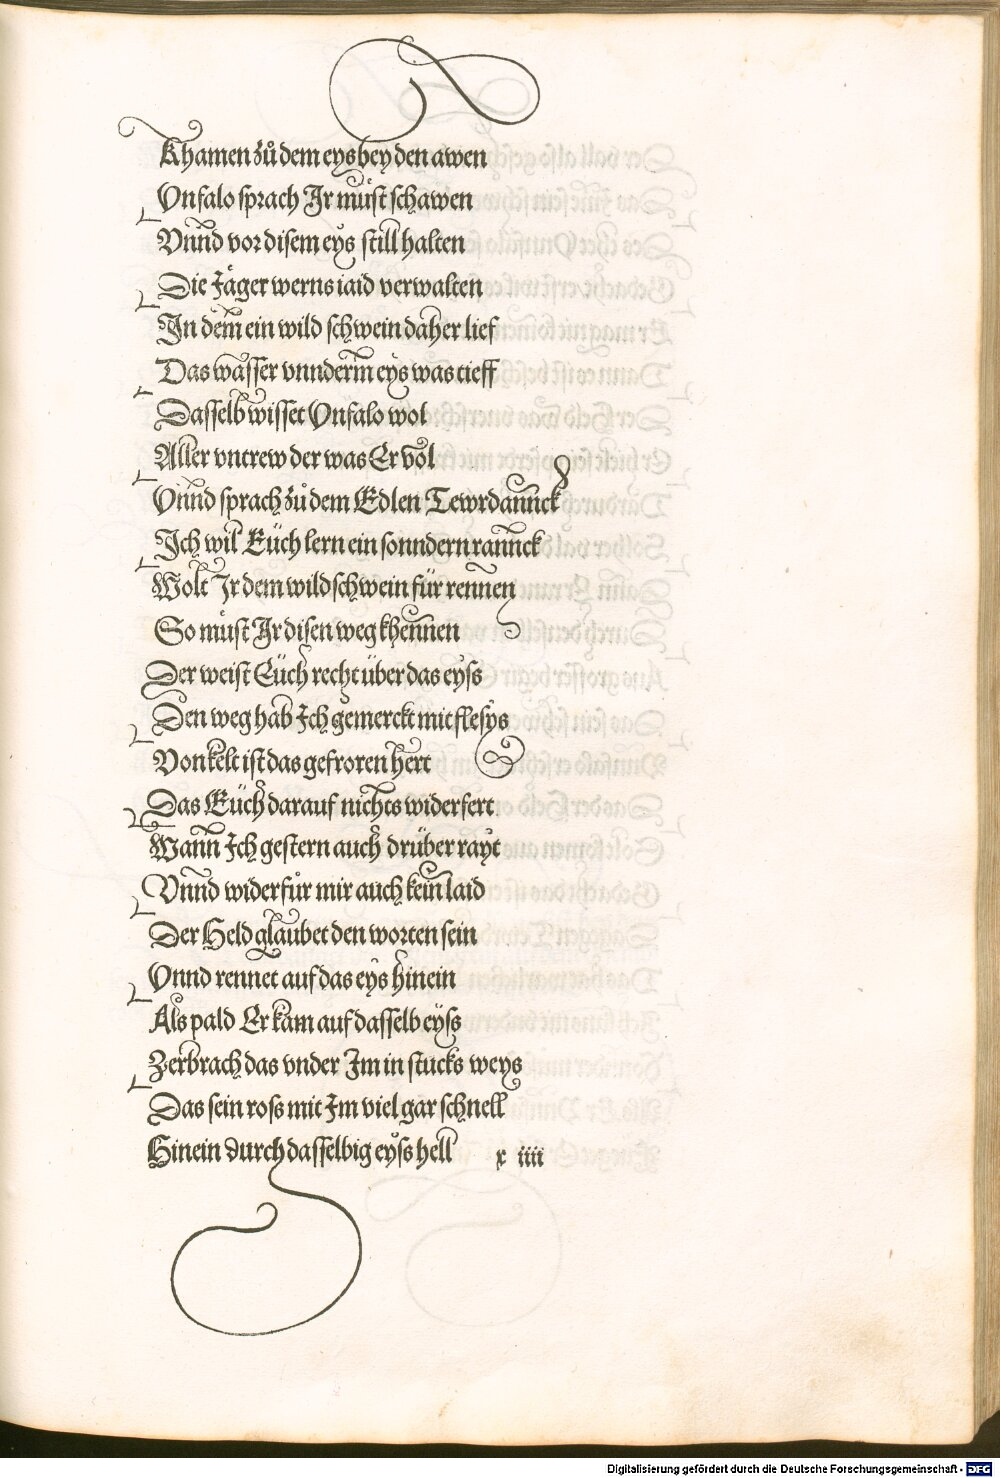 Khamen zů dem eys bey den awen
Vnfalo sprach Ir můst schawen
Vnnd vor disem eys still halten
Die Jäger werns iaid verwalten
In dem ein wild schwein daher lief
Das wasser vnnderm eys was tieff
Dasselb wisset Vnfalo wol
Aller vntrew der was Er vol
Vnnd sprach zů dem Edlen Tewrdannck
Ich wil Eüch lern ein sonndern rannck
Wolt Ir dem wildschwein für rennen
So müst Ir disen weg khennen
Der weist Eüch recht über das eyss
Den weg hab Ich gemerckt mit fleys
Von kelt ist das gefroren hert
Das Eüch darauf nichts widerfert
Wann Ich gestern auch drüber rayt
Vnnd widerfůr mir auch kein laid
Der Held glaubet den worten sein
Vnnd rennet auf das eys hinein
Als pald Er kam auf dasselb eyss
Zerbrach das vnder Im in stucks weys
Das sein ross mit Im viel gar schnell
Hinein durch dasselbig eyss hell x iiii
Digitalisierung gefördert durch die Deutsche Forschungsgemeinschaft - DFG